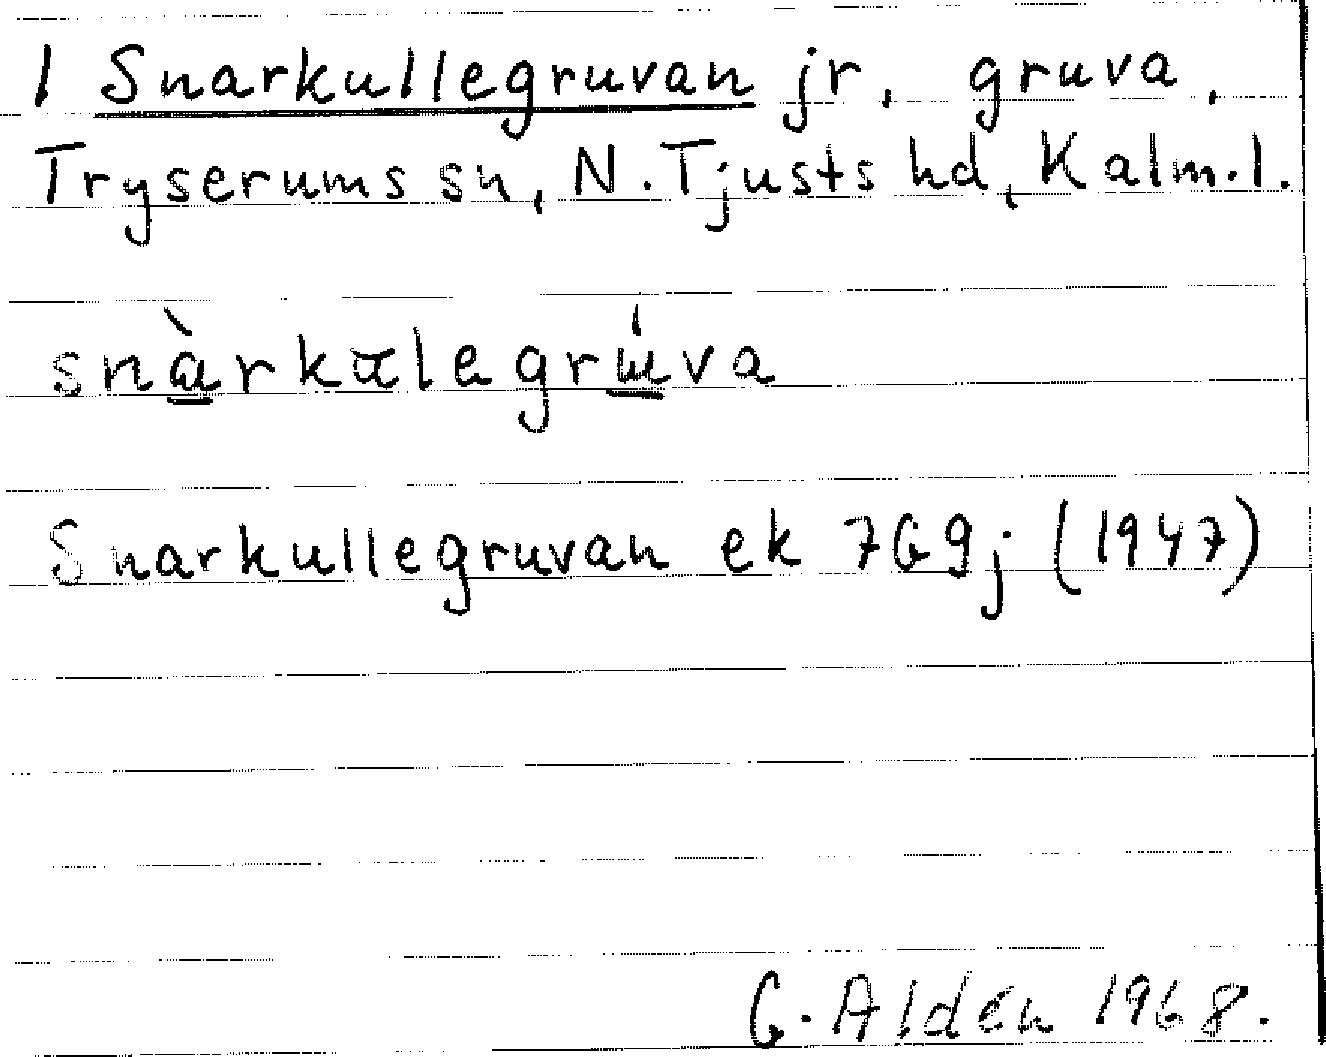 1 Snarkullegruvan jr, gruva,
Tryserums sn, N. Tjusts hd, Kalm.l.
Snarkullegruvan ek 7G9j (1947)
G. Aldén 1968.